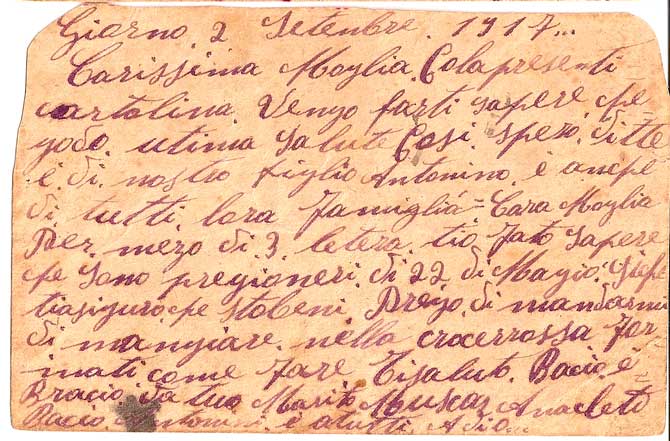 Giorno 2 Setenbre. 1917...
Carissima Moglia. Cola presenti
cartolina. Vengo farti sapere che
godo. utima salute Cosi. spero. di tte
é. di. nostro figlio Antonino. é anche
di tutti. loro famiglia = Cara Moglia
Per. mezo di 3 letera. tio fato sapere
che sono pregioneri. di 22 di Magio.
tiasiguro. che stobeni. Prego. di mandarmi
di mangiare. nella crocerrossa For
mati come fare Tisaluto. Bacio. é
Bracio. da tuo Marito Muscas Anacleto
Bacio Antonino. é atutti Adio...